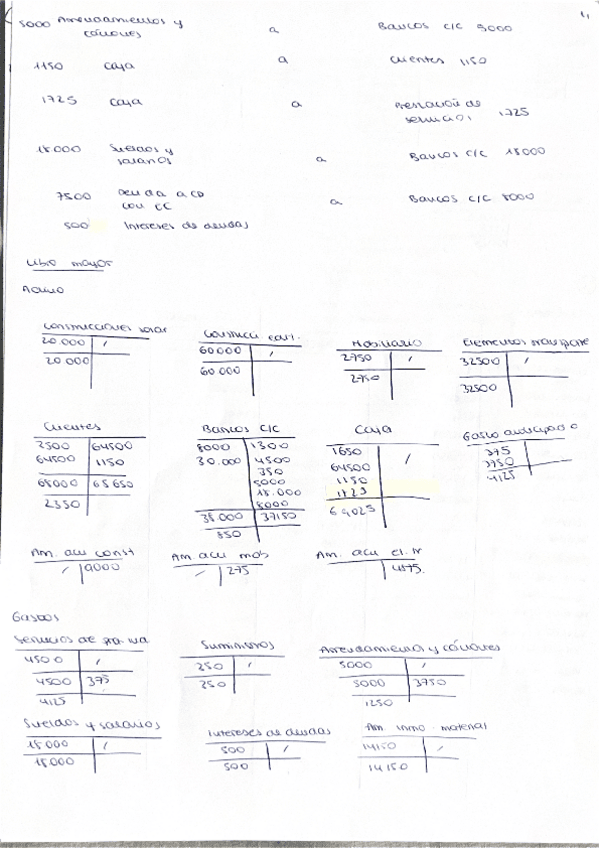 5000 Arrendamientos y cánones a Bancos c/c 5000
1150 Caja a Clientes 1150
1725 Caja a Prestación de servicios 1725
18000 Sueldos y salarios a Bancos c/c 18000
7500 Deuda a cp con EC a Bancos c/c 8000
500 Intereses de deudas
Libro mayor
Activo
Construcciones solar
20.000 /
20.000
Construcci
60000 /
60.000
Mobiliario
2750 /
2750
Elementos transporte
32500 /
32500
Clientes
3500 64500
64500 1150
68000 65650
2350
Bancos c/c
8000 1300
30.000 4500
350
5000
18.000
8000
38.000 37150
850
Caja
1650 /
64500
1150
1725
69025
Gasto anticipado
375
3750
4125
Am. acu const
/ 9000
Am. acu mob
/ 275
Am. acu el. tr
/ 4875
Gastos
Servicios de
4500 /
4500 375
4125
Suministros
250 /
250
Arrendamientos y cánones
5000 /
5000 3750
1250
Sueldos y salarios
18.000 /
18.000
Intereses de deudas
500 /
500
Am. inmo. material
14150 /
14150